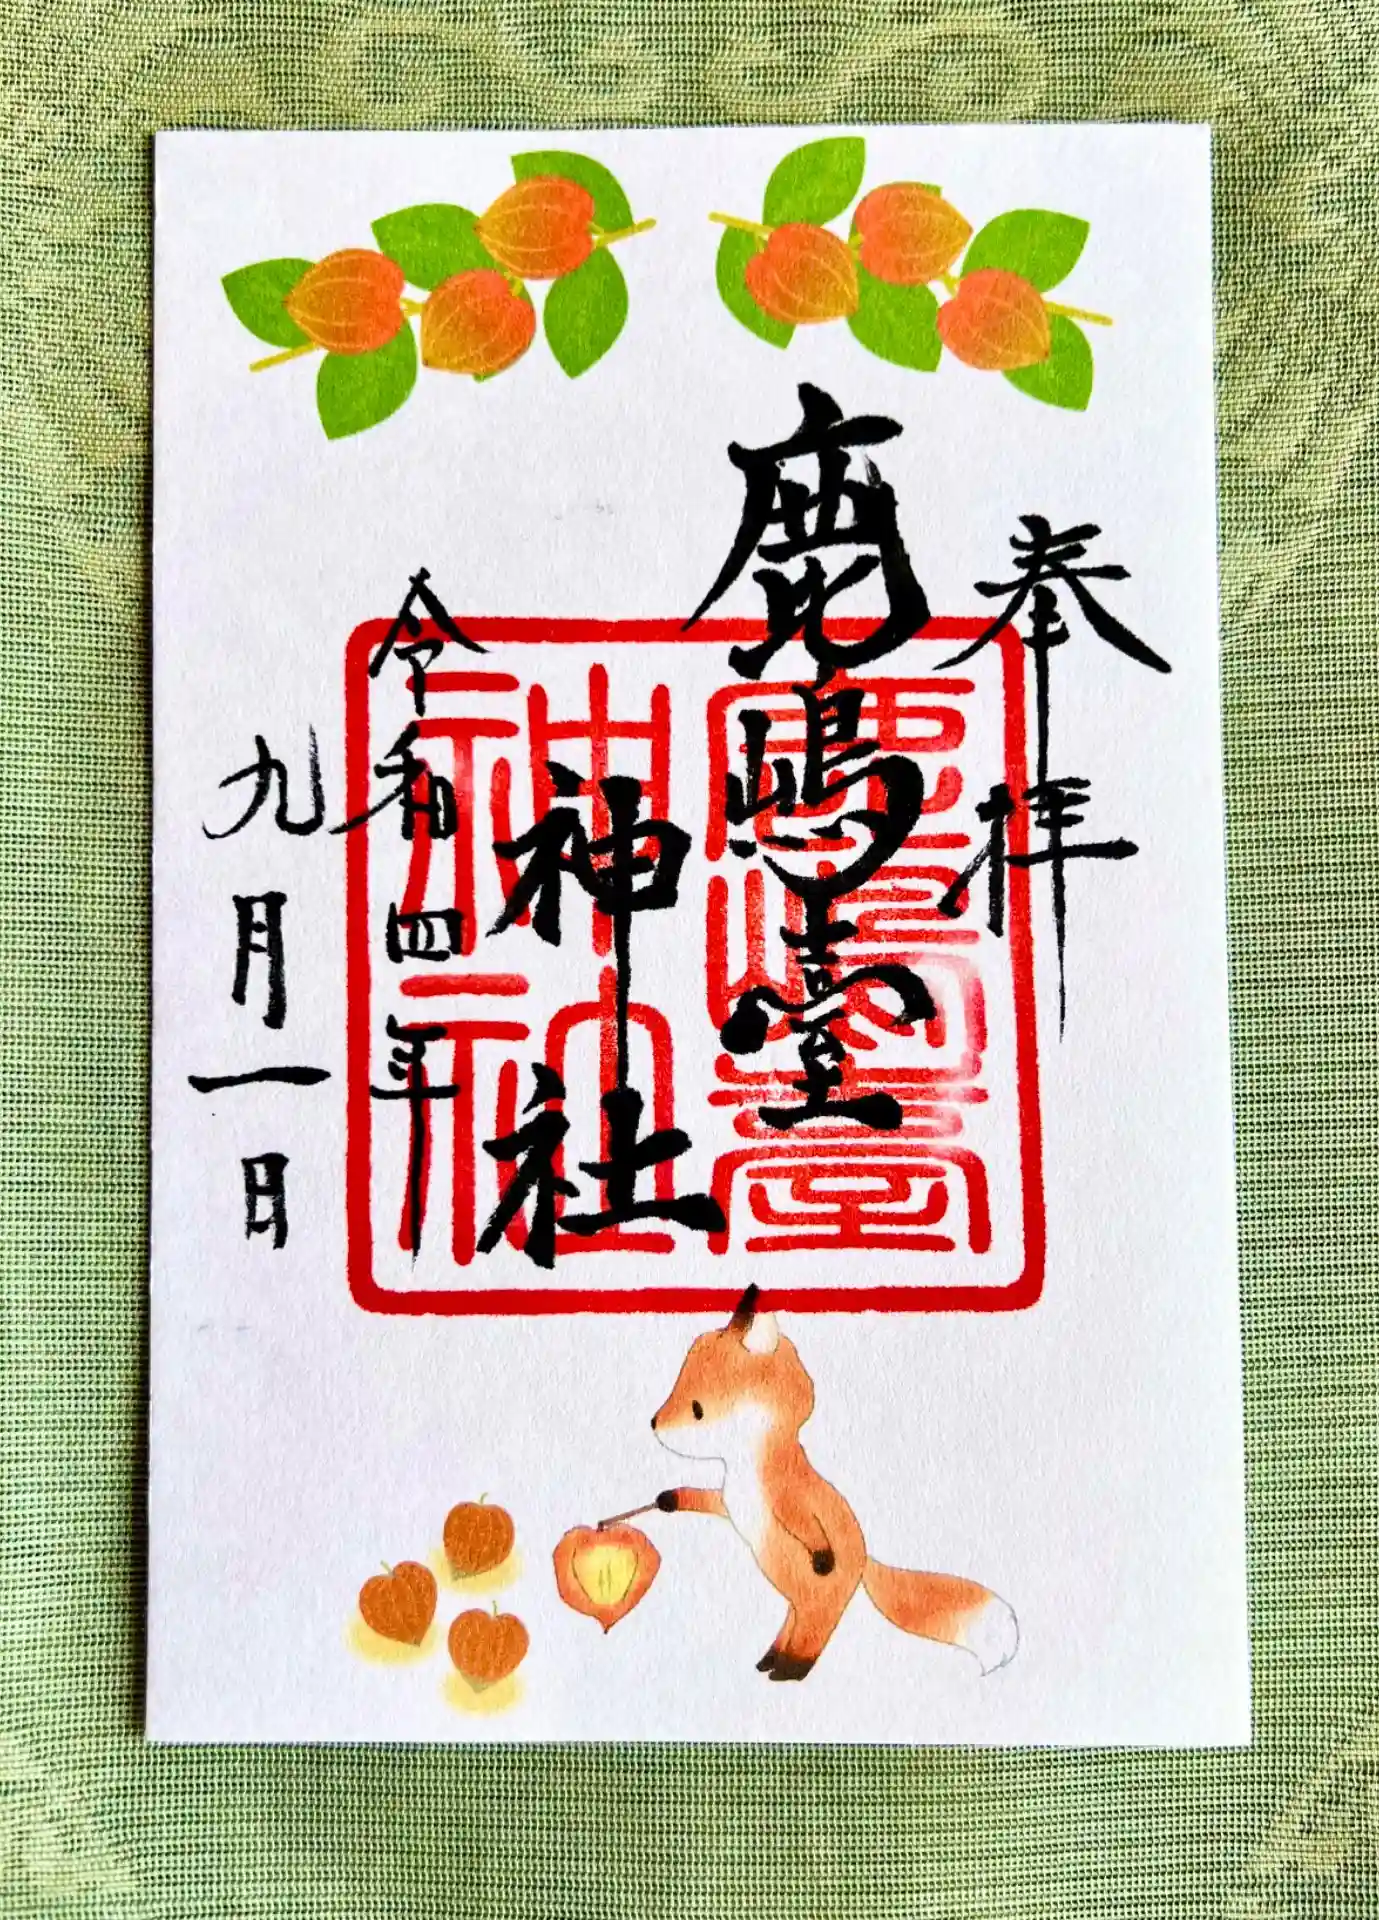 奉拝
鹿嶋臺
神社
令和四年
九月一日
鹿嶋臺
神社